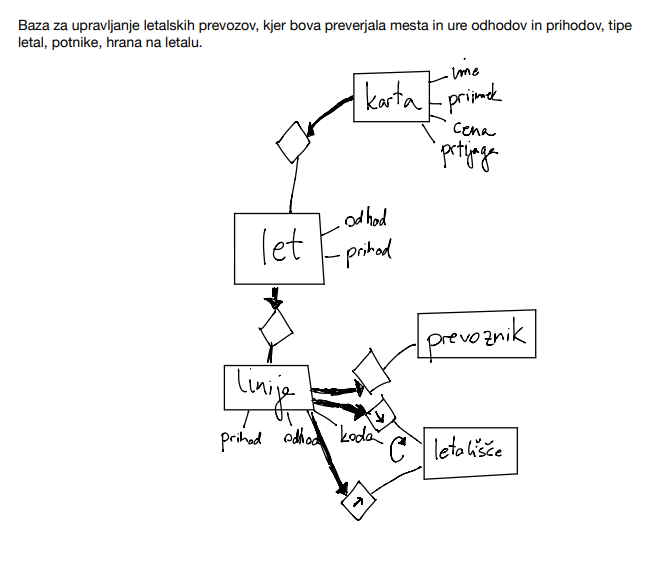 Baza za upravljanje letalskih prevozov, kjer bova preverjala mesta in ure odhodov in prihodov, tipe
letal, potnike, hrana na letalu.
ime
karta
priimek
cena
prtljaga
odhod
let
prihod
prevoznik
linije
prihod
odhod
koda
letališče